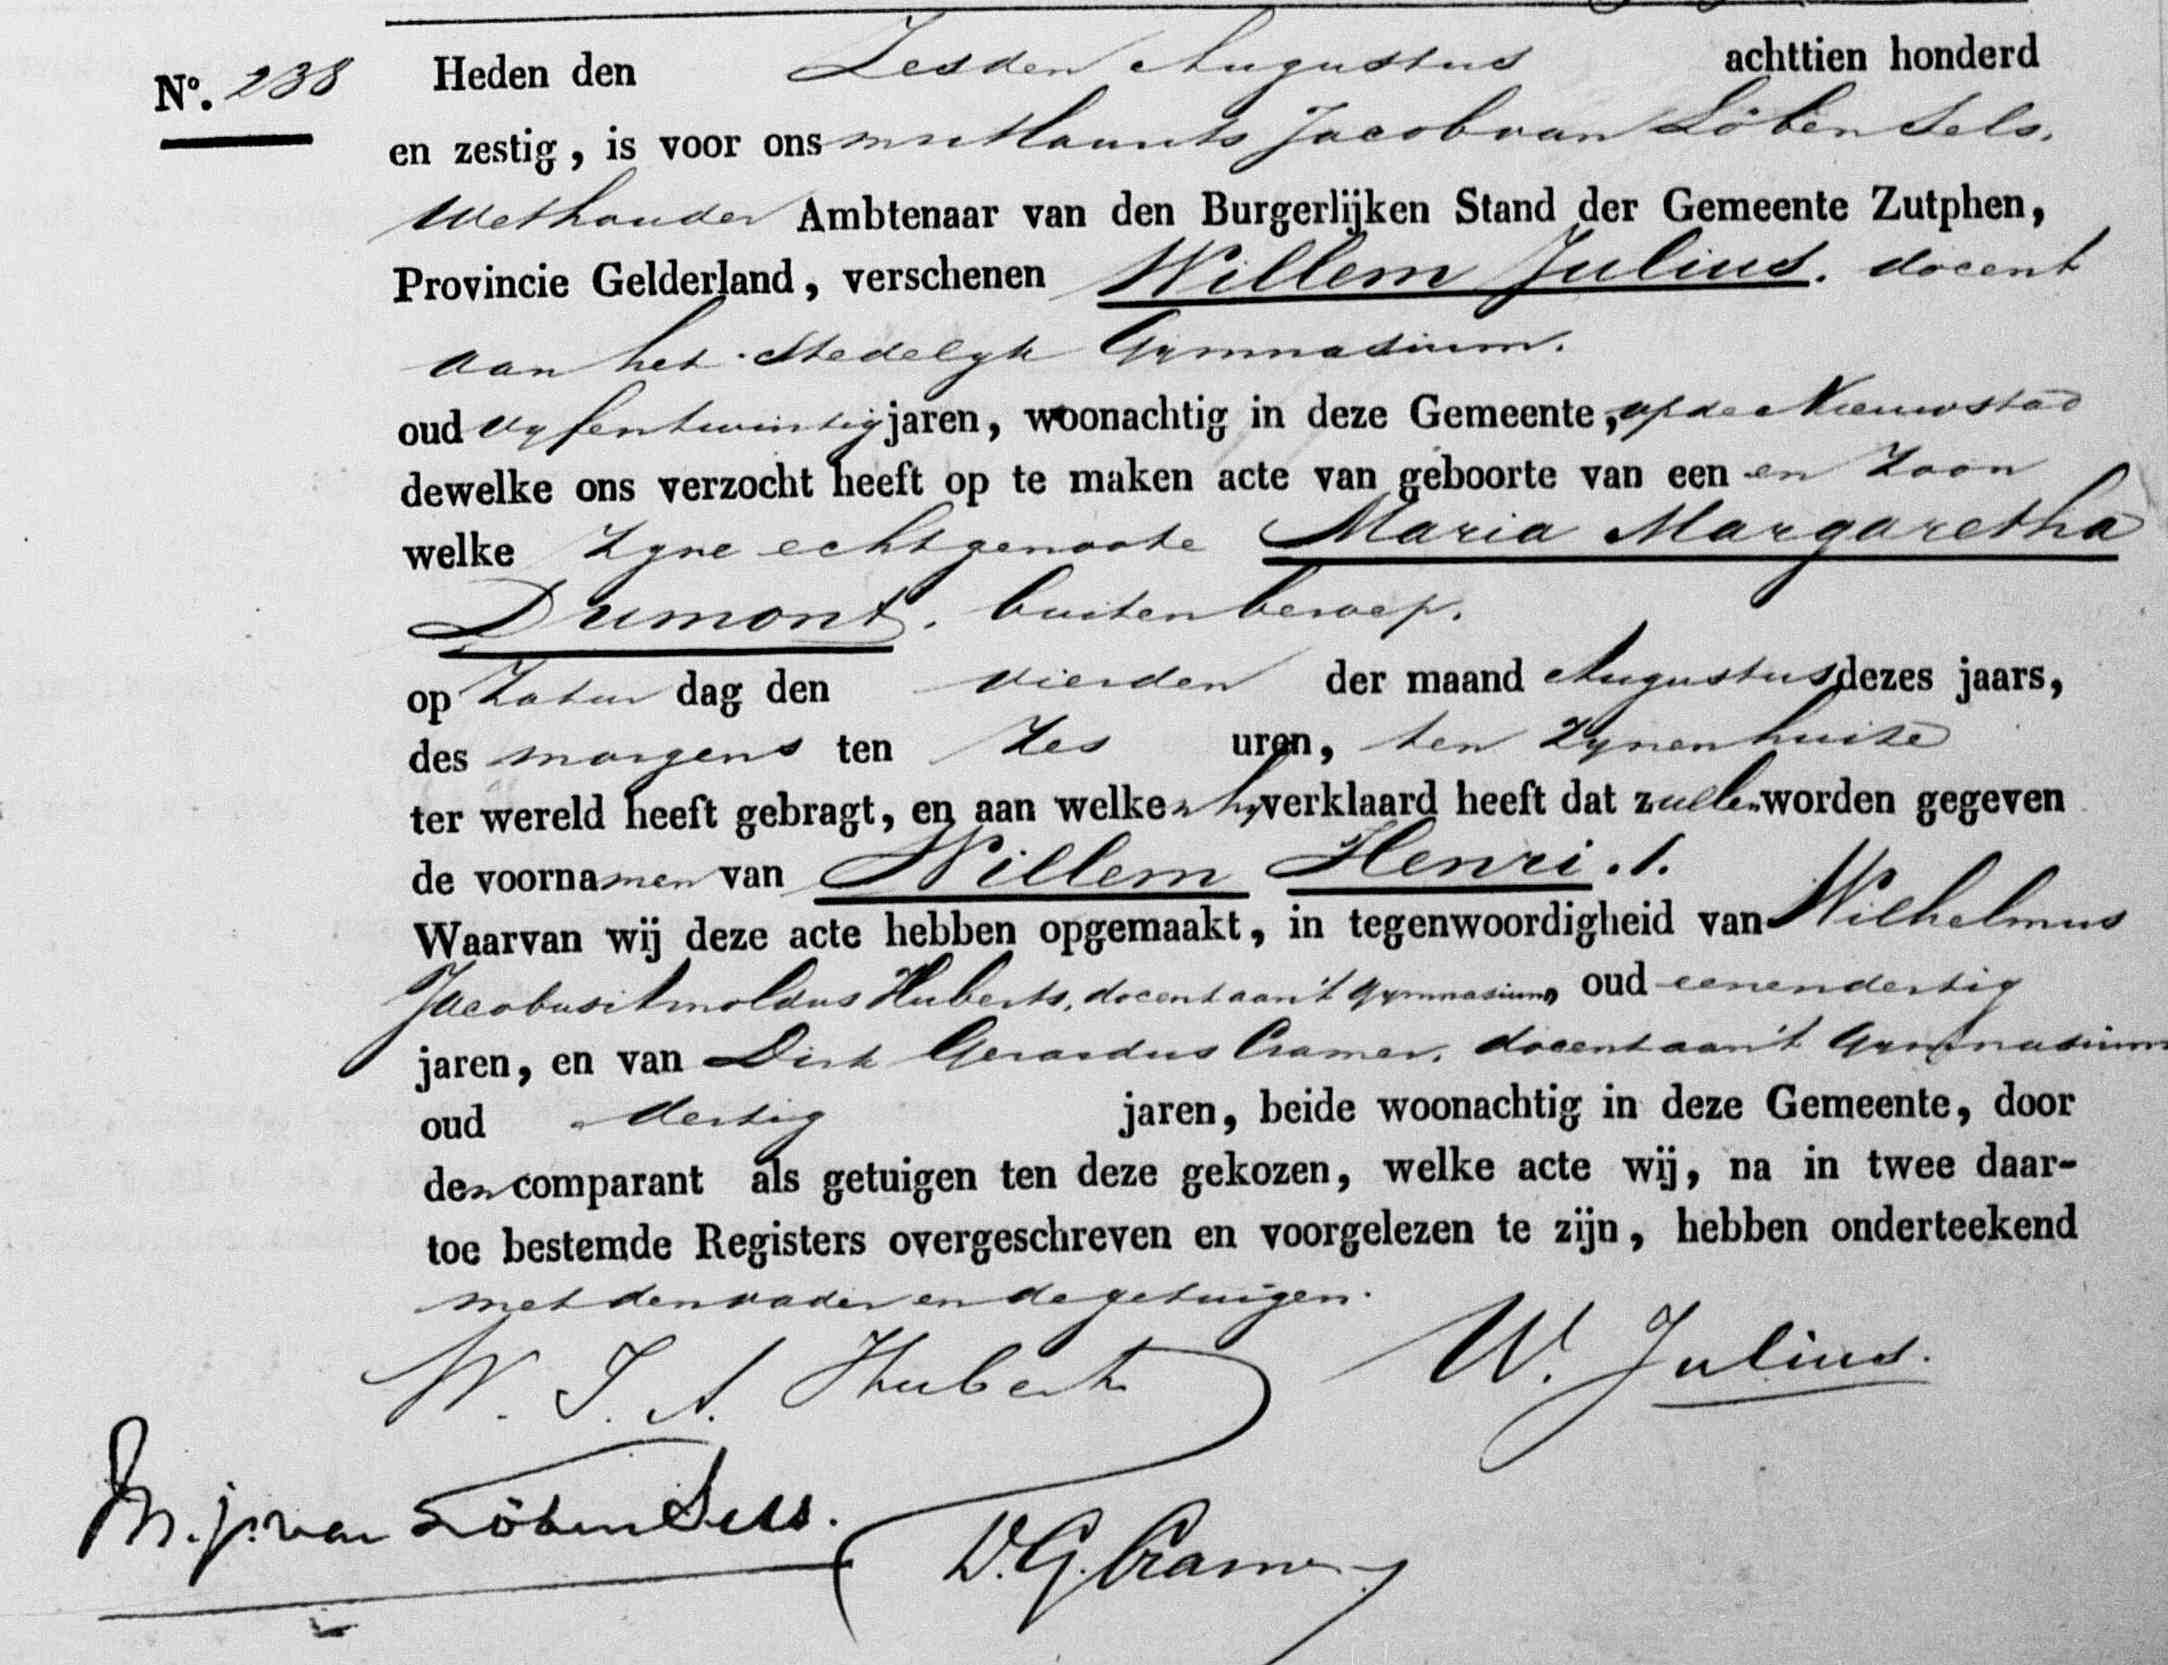 Nº. 238 Heden den Zesden Augustus achttien honderd
en zestig, is voor ons mr Maurits Jacob van Löben Sels.
Wethouder Ambtenaar van den Burgerlijken Stand der Gemeente Zutphen,
Provincie Gelderland, verschenen Willem Julius. docent
aan het Stedelyk Gymnasium.
oud vyfentwintig jaren, woonachtig in deze Gemeente, op de Nieuwstad
dewelke ons verzocht heeft op te maken acte van geboorte van een en zoon
welke zyne echtgenoote Maria Margaretha
Dumont. buiten beroep.
op Zatur dag den vierden der maand Augustus dezes jaars,
des morgens ten zes uren, ten zynen huize
ter wereld heeft gebragt, en aan welken hy verklaard heeft dat zullen worden gegeven
de voornamen van Willem Henri./.
Waarvan wij deze acte hebben opgemaakt, in tegenwoordigheid van Wilhelmus
Jacobus Arnoldus Huberts, docent aan 't Gymnasium, oud eenendertig
jaren, en van Dirk Gerardus Cramer. docent aan 't Gymnasium
oud dertig jaren, beide woonachtig in deze Gemeente, door
den comparant als getuigen ten deze gekozen, welke acte wij, na in twee daar-
toe bestemde Registers overgeschreven en voorgelezen te zijn, hebben onderteekend
met den vader en de getuigen.
W. J. A. Huberts W. Julius.
M. J. van Löben Sels.
D. G. Cramer